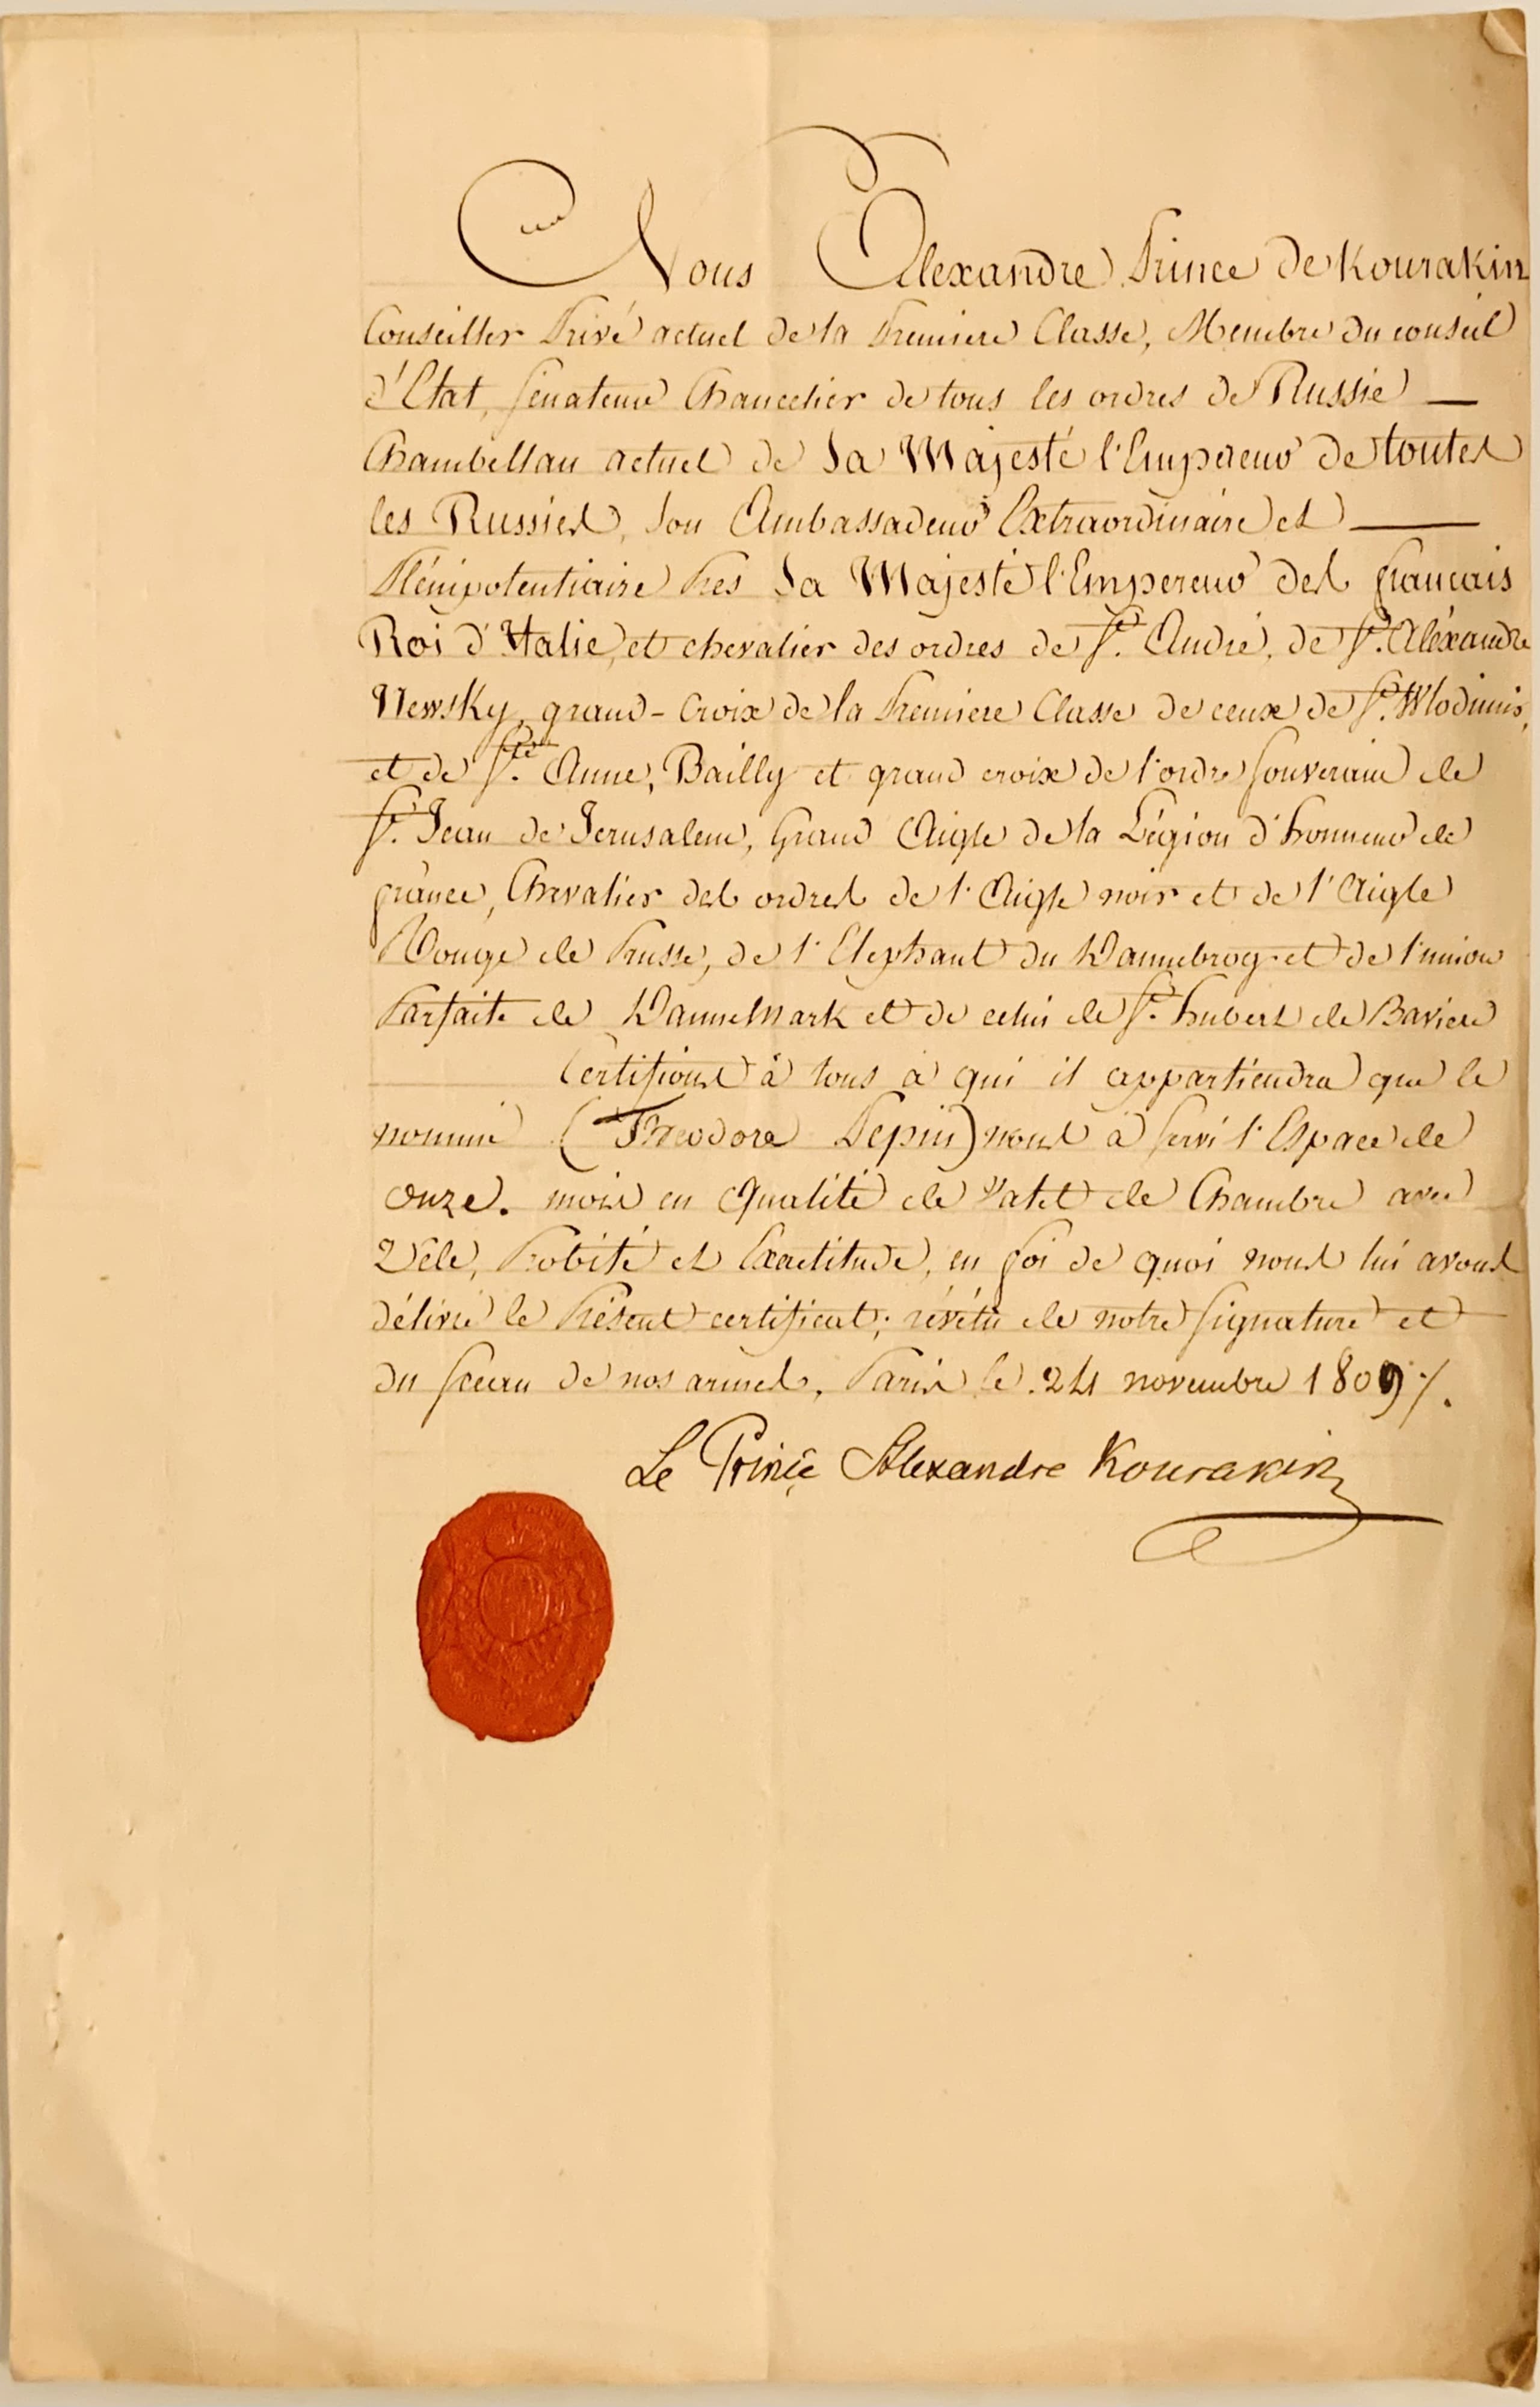 Nous Alexandre Prince de Kourakin
Conseiller Privé actuel de la Premiere Classe, Membre du conseil
d'Etat, Senateur Chancelier de tous les ordres de Russie —
Chambellan actuel de Sa Majesté l'Empereur de toutes
les Russies, Son Ambassadeur Extraordinaire et —
Plénipotentiaire Près Sa Majesté l'Empereur des francais
Roi d'Italie, et chevalier des ordres de St. André, de St. Aléxandre
Newsky, grand-Croix de la Premiere Classe de ceux de St. Wlodimir,
et de Ste. Anne, Bailly et grand croix de l'ordre Souverain de
St. Jean de Jerusalem, Grand Aigle de la Légion d'honneur de
france, Chevalier des ordres de l'Aigle noir et de l'Aigle
Rouge de Prusse, de l'Elephant du Dannebrog et de l'union
Parfaite de Dannemark et de celui de St. hubert de Baviere
Certifions à tous à qui il appartiendra que le
nommé (Theodore Pepin) nous à servi l'Espace de
onze. mois en Qualité de Valet de Chambre avec
Zèle, Probité et Exactitude, en foi de quoi nous lui avons
délivré le Présent certificat; révétu de notre Signature et
du Sceau de nos armes, Paris le. 24 novembre 1809 ./.
Le Prince Alexandre Kourakin